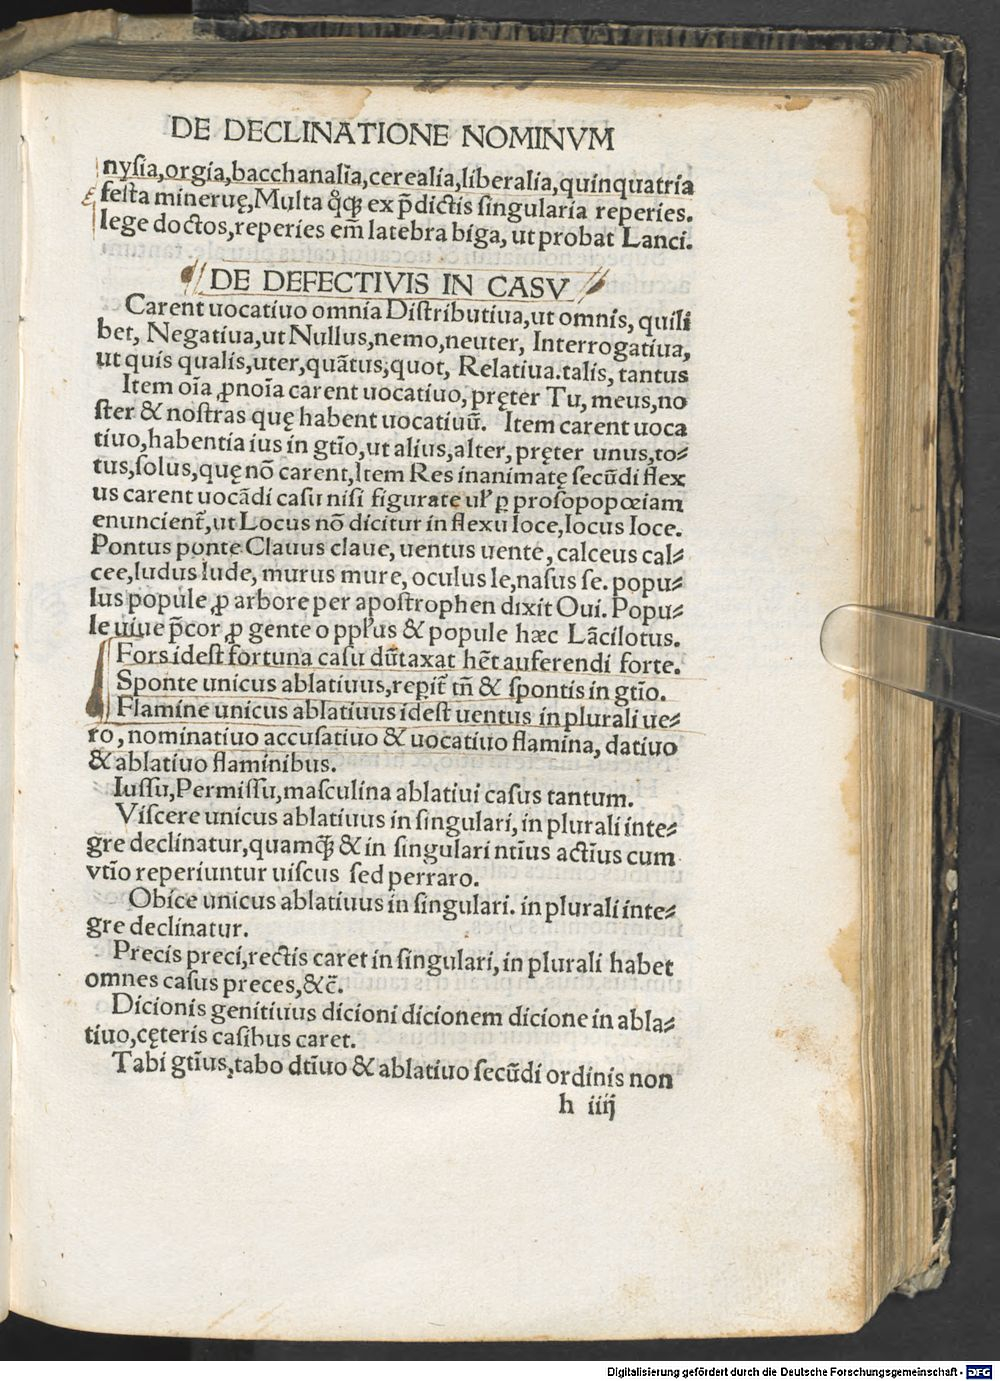 DE DECLINATIONE NOMINVM
nysia,orgia,bacchanalia,cerealia,liberalia,quinquatria
festa mineruę,Multa q̊q̃ ex p̄dictis singularia reperies.
lege doctos,reperies em̄ latebra biga, ut probat Lanci.
DE DEFECTIVIS IN CASV
Carent uocatiuo omnia Distributiua,ut omnis, quili
bet, Negatiua,ut Nullus,nemo,neuter, Interrogatiua,
ut quis qualis,uter,quãtus,quot, Relatiua.talis, tantus
Item oĩa ꝓnoĩa carent uocatiuo, pręter Tu, meus,no
ster & nostras quę habent uocatiuũ. Item carent uoca
tiuo,habentia ius in gtĩo,ut alius,alter, pręter unus,to⸗
tus,solus,quę nõ carent,Item Res inanimatę secũdi flex
us carent uocãdi casu nisi figurate ul̉ ꝑ prosopopœiam
enuncient̃,ut Locus nõ dicitur in flexu loce,locus loce.
Pontus ponte Clauus claue, uentus uente, calceus cal⸗
cee,ludus lude, murus mure, oculus le,nasus se. popu⸗
lus popule ꝓ arbore per apostrophen dixit Oui. Popu⸗
le uiue p̃cor ꝓ gente o ppl̉us & popule hæc Lãcilotus.
Fors idest fortuna casu dũtaxat hẽt auferendi forte.
Sponte unicus ablatiuus,repit̃ tñ & spontis in gtĩo.
Flamine unicus ablatiuus idest uentus in plurali ue⸗
ro, nominatiuo accusatiuo & uocatiuo flamina, datiuo
& ablatiuo flaminibus.
Iussu,Permissu,masculina ablatiui casus tantum.
Viscere unicus ablatiuus in singulari, in plurali inte⸗
gre declinatur,quamq̃ & in singulari ntĩus actĩus cum
vtĩo reperiuntur uiscus sed perraro.
Obice unicus ablatiuus in singulari. in plurali inte⸗
gre declinatur.
Precis preci,rectis caret in singulari, in plurali habet
omnes casus preces,&c̃.
Dicionis genitiuus dicioni dicionem dicione in abla⸗
tiuo,cęteris casibus caret.
Tabi gtĩus,tabo dtĩuo & ablatiuo secũdi ordinis non
h iiij
Digitalisierung gefördert durch die Deutsche Forschungsgemeinschaft - DFG